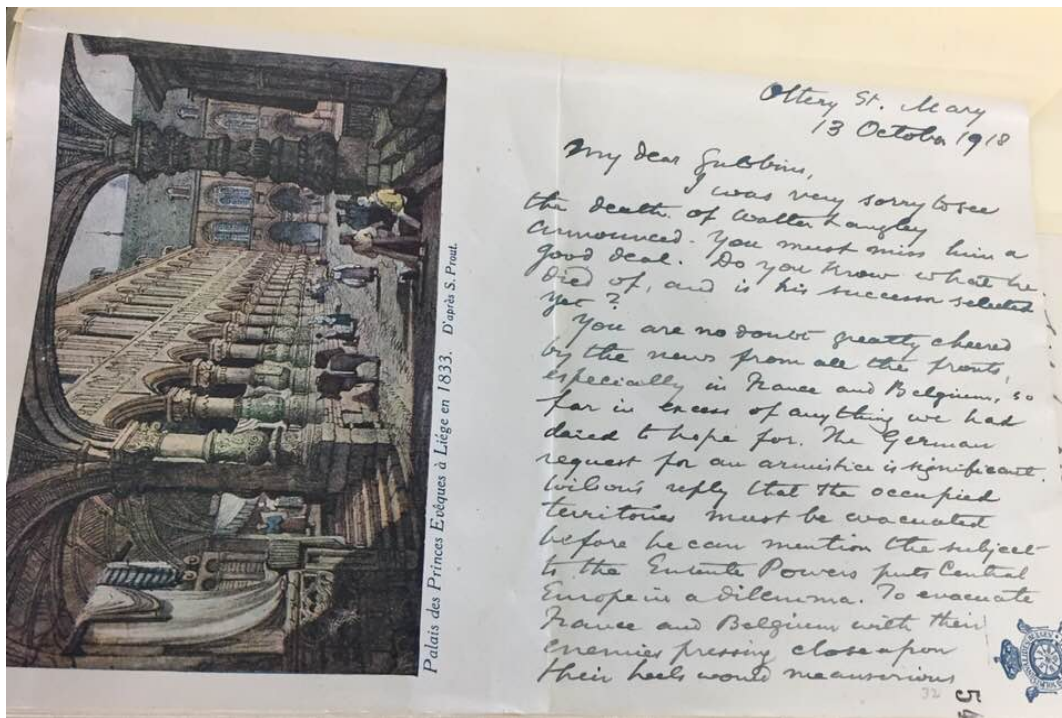 Palais des Princes Evêques à Liége en 1833. D'après S. Prout.
Ottery St. Mary
13 October 1918
My dear Gubbins,
I was very sorry to see
the death of Walter Langley
announced. You must miss him a
good deal. Do you know what he
died of, and is his successor selected
yet?
You are no doubt greatly cheered
by the news from all the fronts,
especially in France and Belgium, so
far in excess of anything we had
dared to hope for. The German
request for an armistice is significant.
Wilson's reply that the occupied
territories must be evacuated
before he can mention the subject
to the Entente Powers puts Central
Europe in a dilemma. To evacuate
France and Belgium with their
enemies pressing close upon
their heels would mean serious
32
54